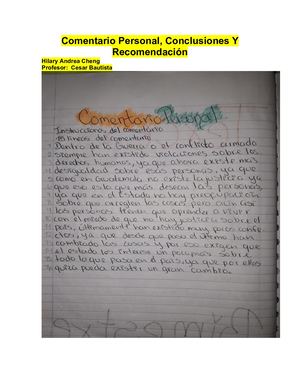 Comentario Personal, Conclusiones Y
Recomendación
Hilary Andrea Cheng
Profesor: Cesar Bautista
Comentario Personal
Instrucciones del comentario
15 líneas del comentario
Dentro de la Guerra o el conflicto armado
siempre han existido violaciones sobre los
derechos humanos, ya que ahora existe más
desigualdad sobre esas personas, ya que
como en Guatemala no existe la justicia ya
que eso es lo que más desean las personas,
ya que en el Estado no hay preocupación
sobre que arreglen las cosas pero aún así
las personas tienen que aprender a vivir
con el miedo de que no hay justicia sobre el
país, últimamente han existido muy pocos
, ya que desde que paso el último han
cambiado las cosas y por eso exigen que
el estado los interese un poco más sobre
todo lo que pasa en el país, ya que por ellos
quizá pueda existir un gran cambio.